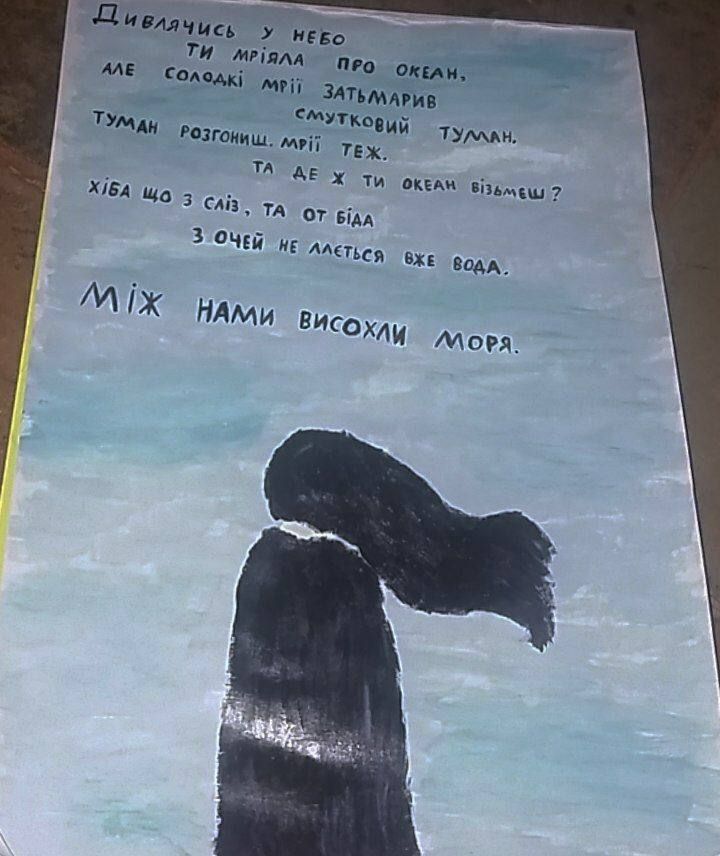 Дивлячись у небо
ти мріяла про океан,
але солодкі мрії затьмарив
смутковий туман.
Туман розгониш. Мрії теж.
Та де ж ти океан візьмеш?
Хіба що з сліз, та от біда
з очей не ллється вже вода.
Між нами висохли моря.